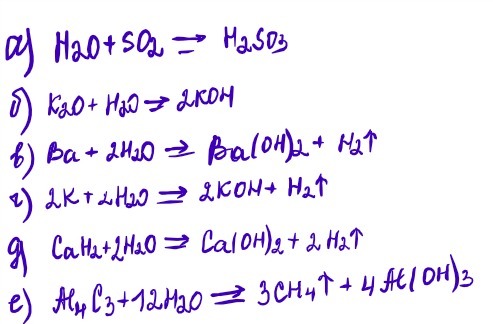 а) H2O + SO2 ⇌ H2SO3
б) K2O + H2O → 2KOH
в) Ba + 2H2O ⇒ Ba(OH)2 + H2↑
г) 2K + 2H2O ⇒ 2KOH + H2↑
д) CaH2 + 2H2O ⇒ Ca(OH)2 + 2H2↑
е) Al4C3 + 12H2O ⇒ 3CH4↑ + 4Al(OH)3